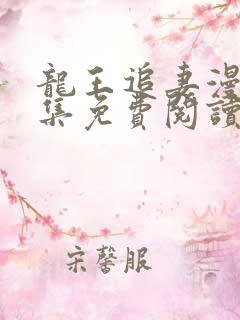 龍王追妻漫
集免費閱讀
宋馨服